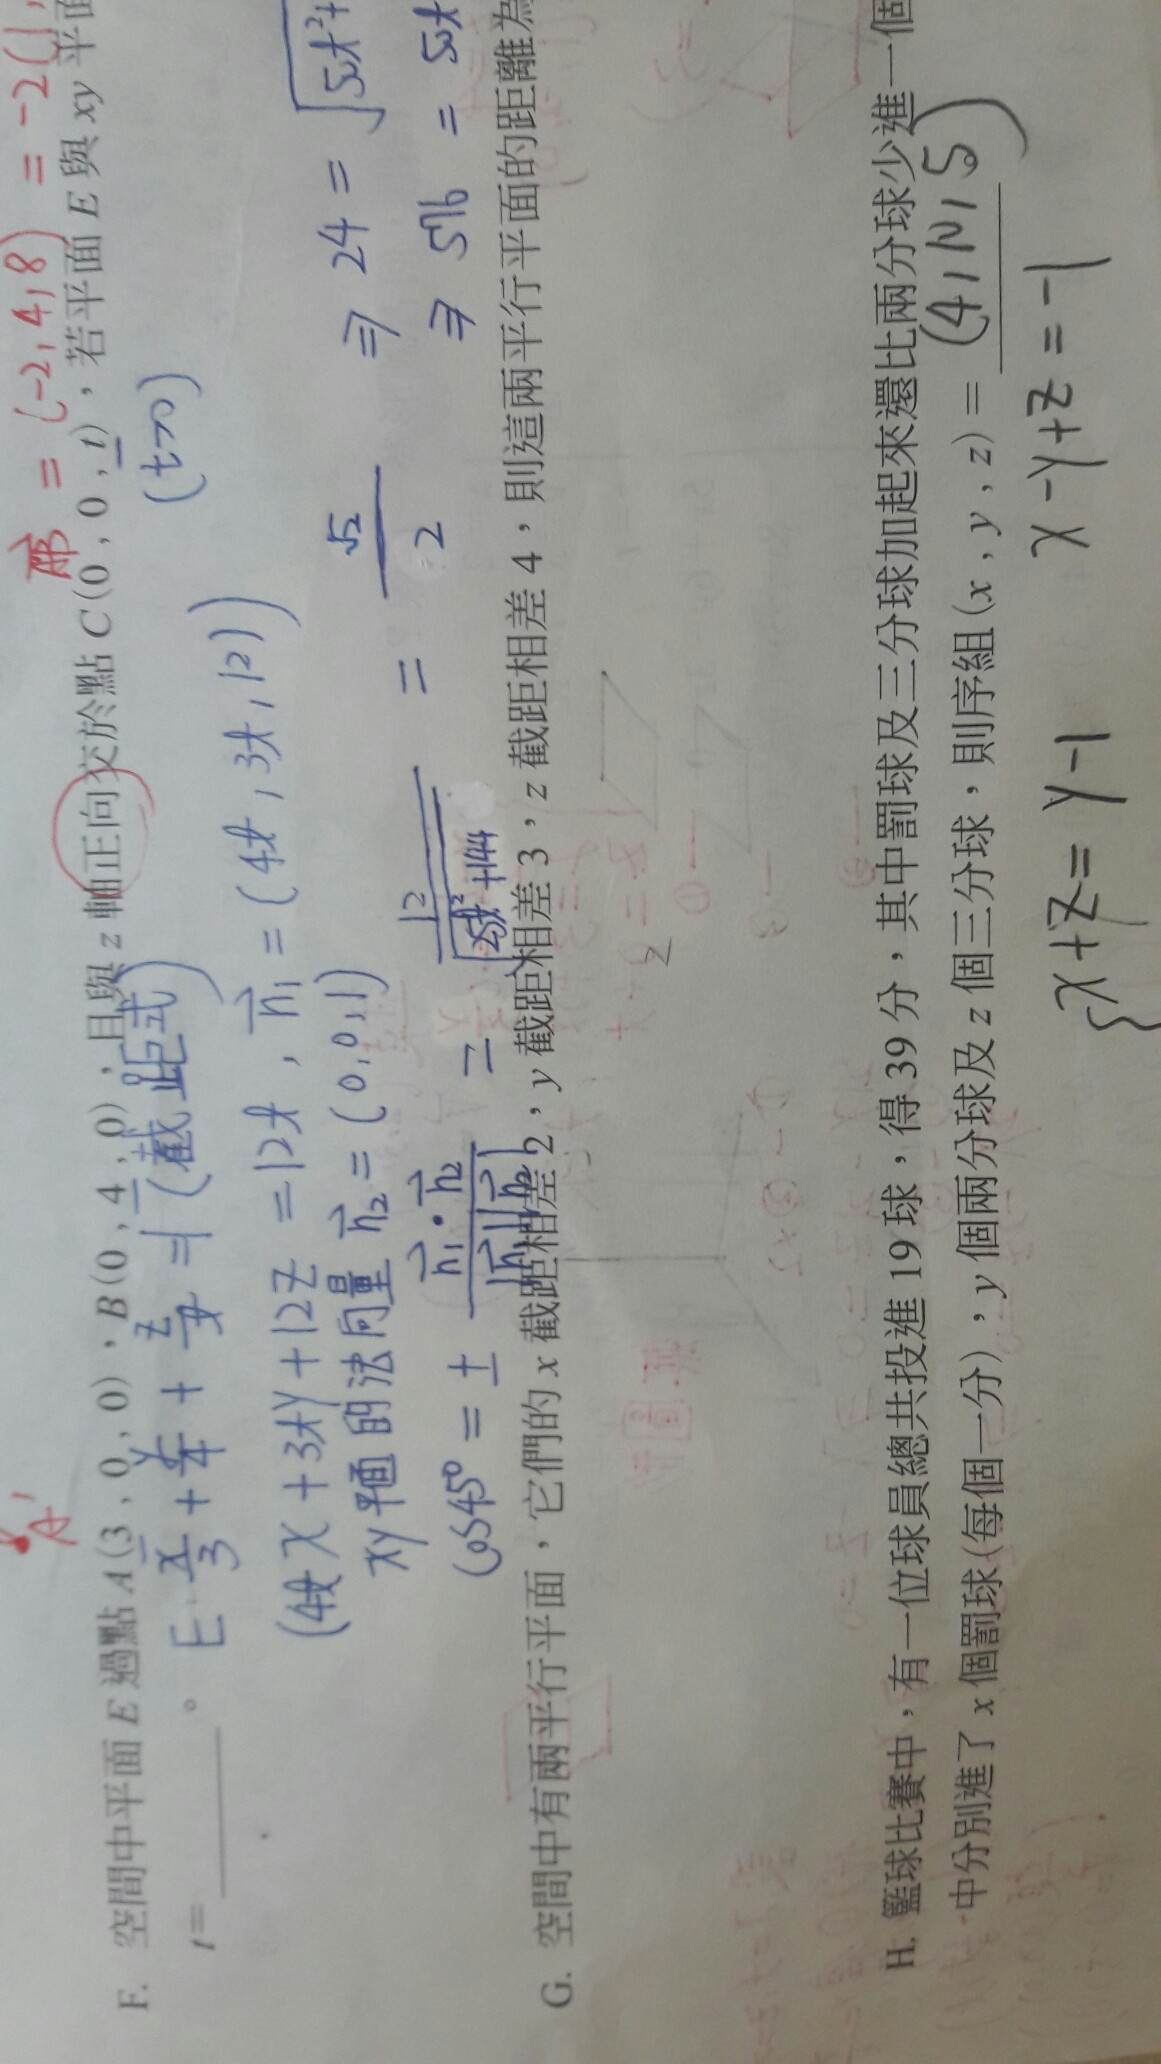 = (-2, 4, 8) = -2(1,
F. 空間中平面 E 過點 A(3 , 0 , 0)、B(0 , 4 , 0),且與 z 軸正向交於點 C(0 , 0 , t),若平面 E 與 xy 平面
(t>0)
t= 。
E: x/3 + y/4 + z/t = 1 (截距式)
(4tx + 3ty + 12z = 12t , n₁ = (4t, 3t, 12))
xy平面的法向量 n₂ = (0, 0, 1)
cos45° = ± n₁·n₂/|n₁||n₂| = 12/√25t²+144 = √2/2
⇒ 24 = √50t²+
⇒ 576 = 50t
G. 空間中有兩平行平面,它們的 x 截距相差 2,y 截距相差 3,z 截距相差 4,則這兩平行平面的距離為
H. 籃球比賽中,有一位球員總共投進 19 球,得 39 分,其中罰球及三分球加起來還比兩分球少進一個
中分別進了 x 個罰球(每個一分),y 個兩分球及 z 個三分球,則序組(x , y , z) = (4, 10, 5)
x+z = y-1
x-y+z = -1